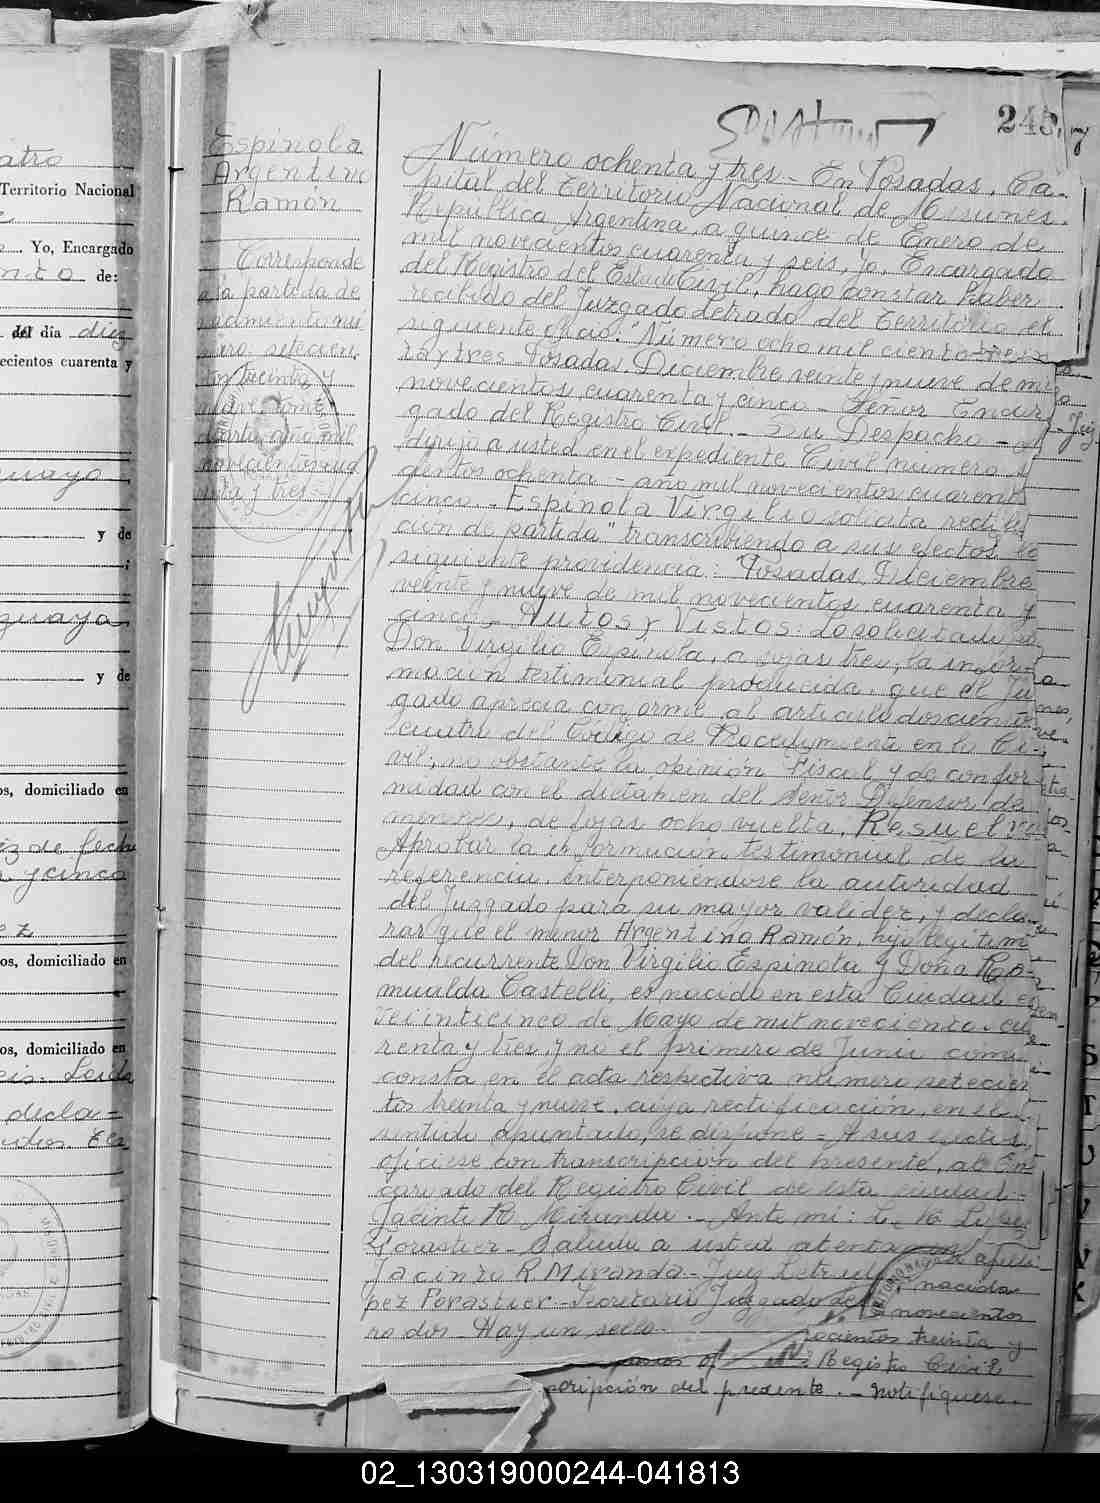 atro
Territorio Nacional
Yo, Encargado
de:
del día diez
ecientos cuarenta y
uaya
y de
guaya
y de
os, domiciliado en
iz de fecha
y cinco
ez
os, domiciliado en
os, domiciliado en
eis. Leida
decla=
245
Espinola
Argentino
Ramón
Corresponde
a la partida de
nacimiento nú
mero setecien
tos treinta y
nueve, tomo
cuarto, año mil
novecientos cua
renta y tres
Número ochenta y tres - En Posadas, Ca-
pital del Territorio Nacional de Misiones,
República Argentina, a quince de Enero de
mil novecientos cuarenta y seis, yo, Encargado
del Registro del Estado Civil, hago constar haber
recibido del Juzgado Letrado del Territorio el
siguiente oficio: "Número ocho mil ciento trein
ta y tres. Posadas, Diciembre veinte y nueve de mil
novecientos cuarenta y cinco - Señor Encar
gado del Registro Civil - Su Despacho -
dirijo a usted en el expediente Civil número
cientos ochenta - año mil novecientos cuarent
cinco - Espinola Virgilio solicita rectifi
ción de partida" transcribiendo a sus efectos la
siguiente providencia: "Posadas, Diciembre
veinte y nueve de mil novecientos cuarenta y
cinco - Autos y Vistos: Lo solicitado po
Don Virgilio Espinola, a fojas tres, la infor-
mación testimonial producida, que el Juz
gado aprecia conforme al artículo doscient
cuatro del Código de Procedimiento en lo Ci-
vil, no obstante la opinión Fiscal y de confor-
midad con el dictamen del Señor Defensor de
menores, de fojas ocho vuelta, Resuelvo
Aprobar la información testimonial de la
referencia, interponiendose la autoridad
del Juzgado para su mayor validez, y decla-
rar que el menor Argentino Ramón, hijo legitimo
del recurrente Don Virgilio Espinola y Doña Ro-
mualda Castelli, es nacido en esta Ciudad e
veinticinco de Mayo de mil novecientos cua
renta y tres, y no el primero de Junio como
consta en el acta respectiva número setecien
tos treinta y nueve, cuya rectificación, en el
sentido apuntado, se dispone - A sus efectos,
ofíciese con transcripción del presente, al En-
cargado del Registro Civil de esta ciudad -
Jacinto R. Miranda. - Ante mi: L. K. López
Forastier - Saluda a usted atenta
Jacinto R Miranda - Juez Letrado
pez Forastier - Secretario Juzgado
ro dos - Hay un sello -
nacida
novecientos
ecientos treinta y
Registro Civil
nscripción del presente. - Notifiquese.
02_130319000244-041813